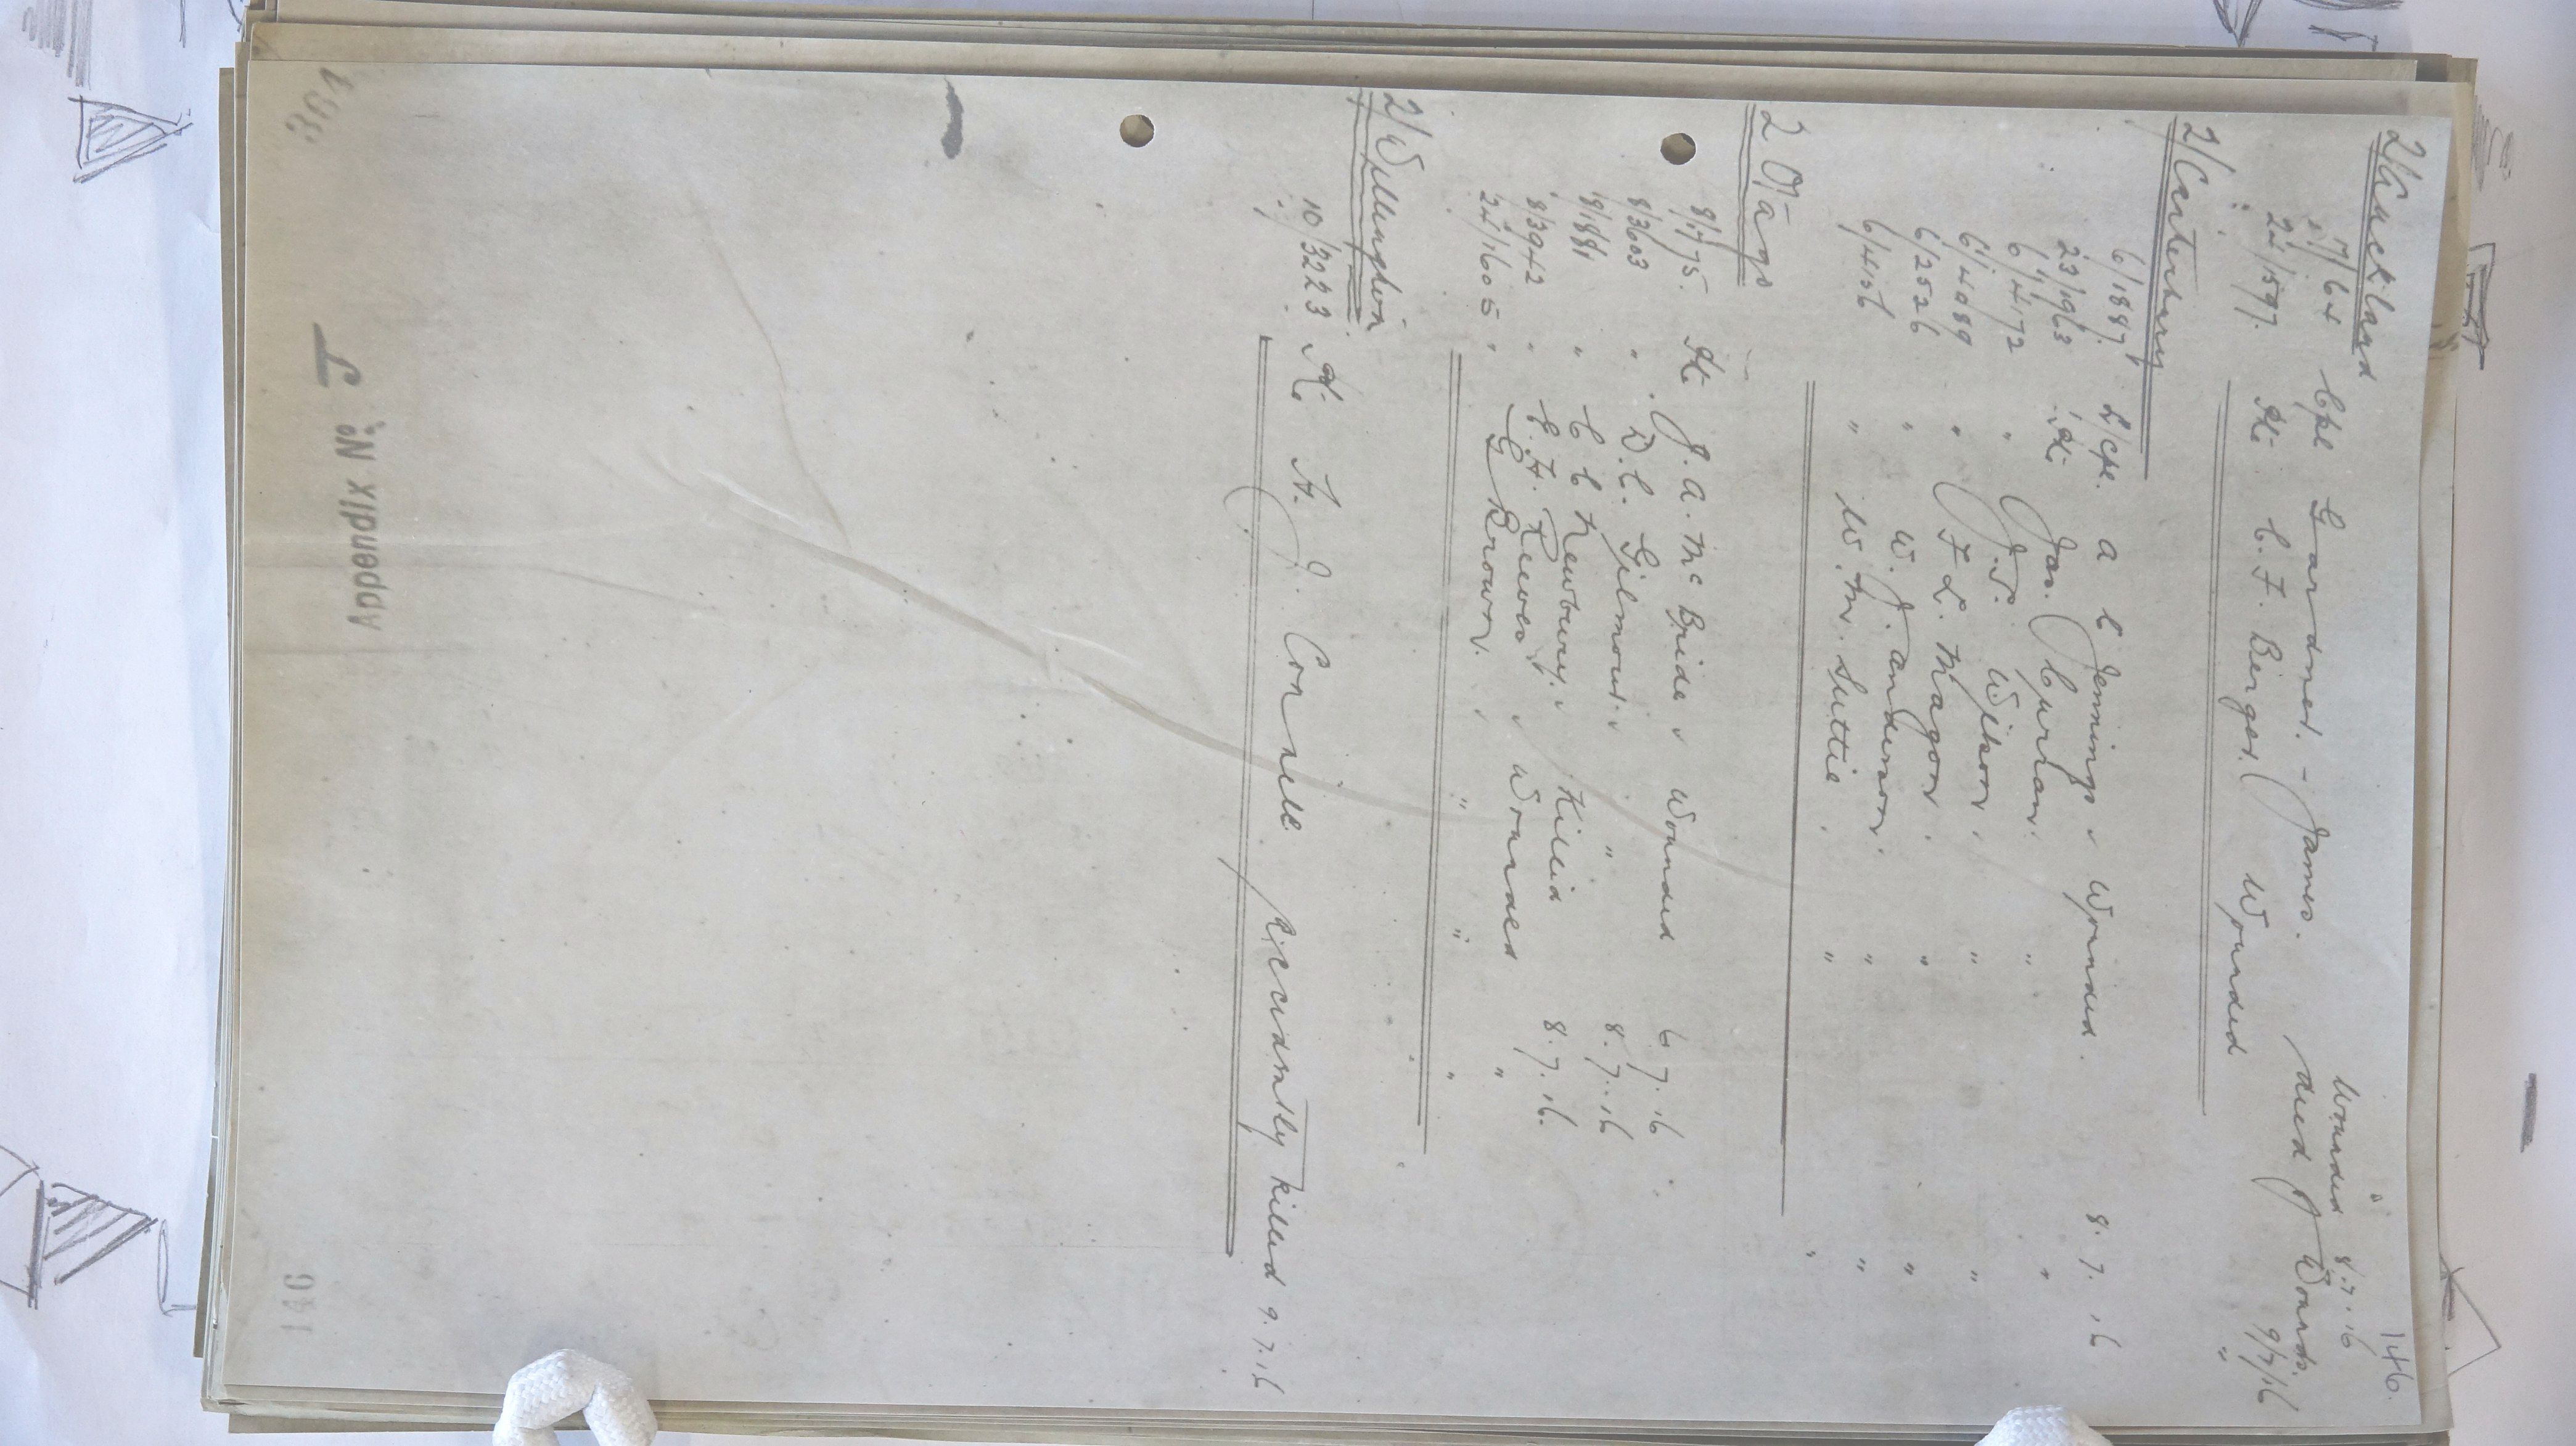 146.
2/Auckland
Wounded 8.7.16
7/64 Cpl Gardner. - James. died of Wounds. 9/7/16
24/1597. Pte C. F. Berger. Wounded "
2/Canterbury
6/1887. L/Cpl. A C Jennings. Wounded. 8. 7. 16
23/1963 Pte Jas. Curran. " "
6/4172 " J. S. Wilson. " "
6/4089 " F L. Magon. " "
6/2526 " W. J. Anderson. " "
6/4156 " W. M. Suttie. " "
2 Otago
8/1775. Pte J. A. McBride. Wounded 6 7. 16
8/3603 " D. C. Gilmour. " 8. 7. 16
8/1881 " C C Newbury. Killed 8. 7. 16.
8/3942 " C. H. Reeves. Wounded "
24/1605 " G Brown. " " "
2/Wellington
10/3223 Pte H. J. Connell. Accidently killed 9. 7. 16
Appendix No. J
364
146